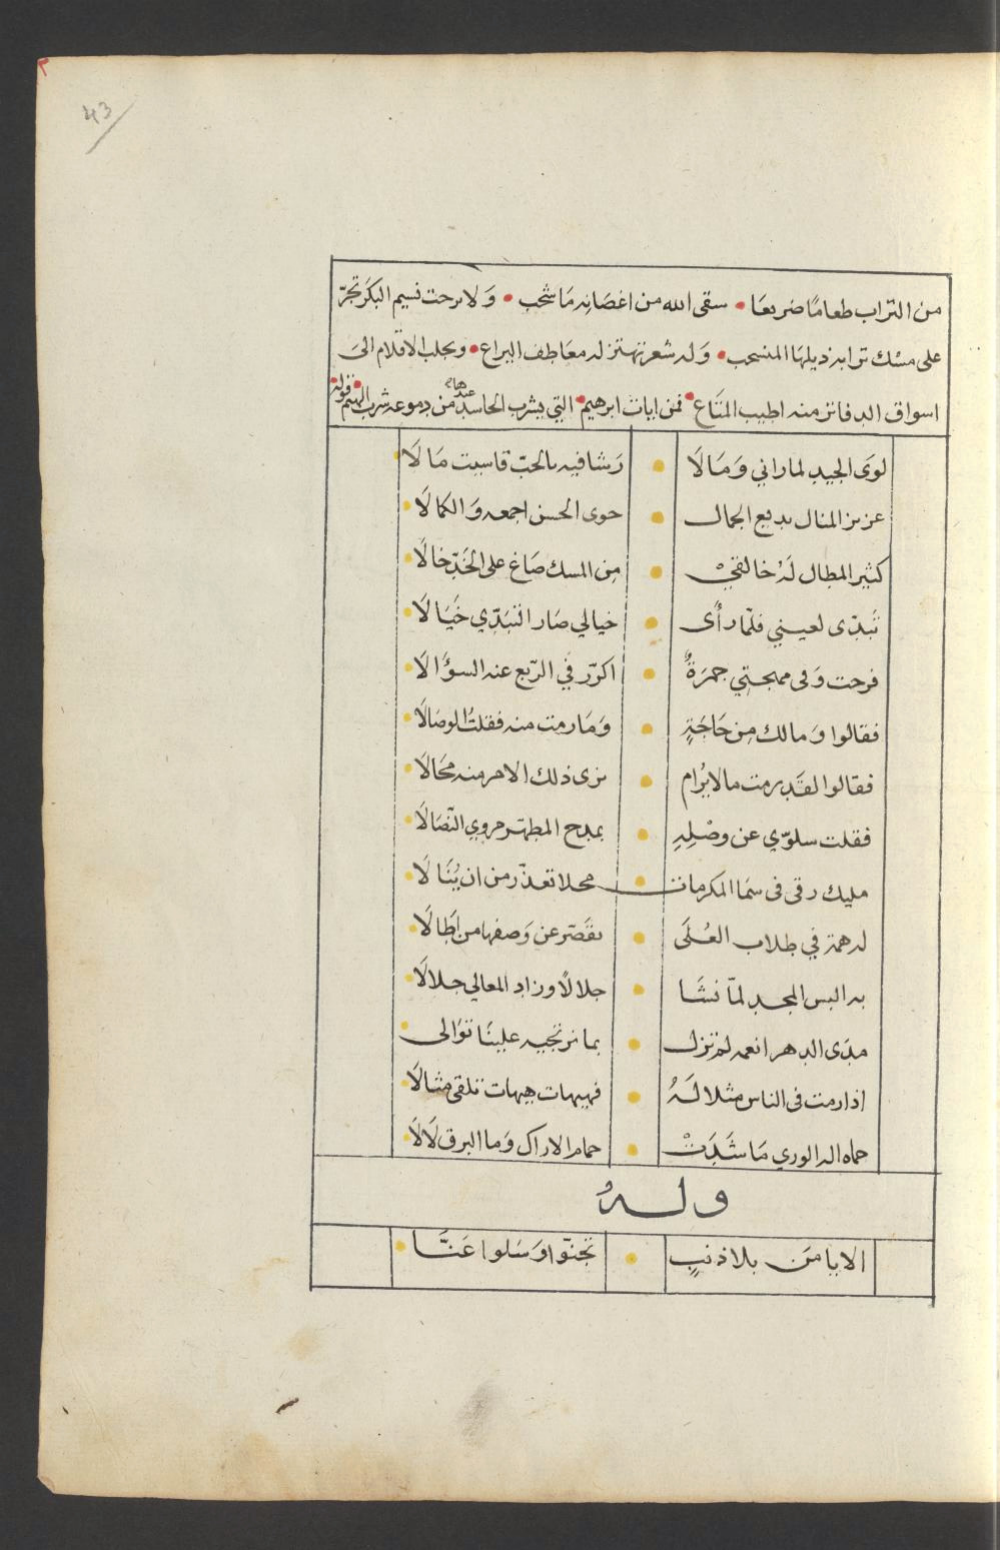 43
من التراب طعاما ضريعا • سقى الله من اغصانه ما شحب • ولا برحت نسيم البكر تجرّ
على مسك ترابه ذيلها المنسحب • وله شعر تهتز له معاطف اليراع • ويجلب الاقلام الى
اسواق الدفاتر منه اطيب المتاع • فمن ابيات ابرهيم • التي يشرب الحاسد عندها من دموعه شرب الهيم • قوله
لوى الجيد لما راني ومالا • رشا فيه بالحب قاسيت مالا
عزيز المنال بديع الجمال • حوى الحسن اجمعه والكمالا
كثير المطال له خالقي • من المسك صاغ على الخدّ خالا
تبدّى لعيني فلمّا رأى • خيالي صار التبدّي خيالا
فرحت وفى مهجتي جمرةٌ • اكرّر في الربع عنه السؤالا
فقالوا وما لك من حاجةٍ • وما رمت منه فقلت الوصالا
فقالوا لقد رمت ما لا يرام • نرى ذلك الامر منه محالا
فقلت سلوّي عن وصلهِ • بمدح المطهر مروي النصالا
مليك رقى فى سما المكرمات • محلا تعذّر من ان ينالا
له همة في طلاب العلى • تقصّر عن وصفها من اطالا
به البس المجد لمّا نشا • جلالًا وزاد المعالي جلالا
مدى الدهر انعمه لم تزل • بما نرتجيه علينا توالى
اذا رمت فى الناس مثلا لهُ • فهيهات هيهات تلقى مثالا
حماه اله الورى ما شدتْ • حمام الاراك وما البرق لالا
وله
الا يا من بلا ذنبٍ • تجنّوا وسلوا عنّا